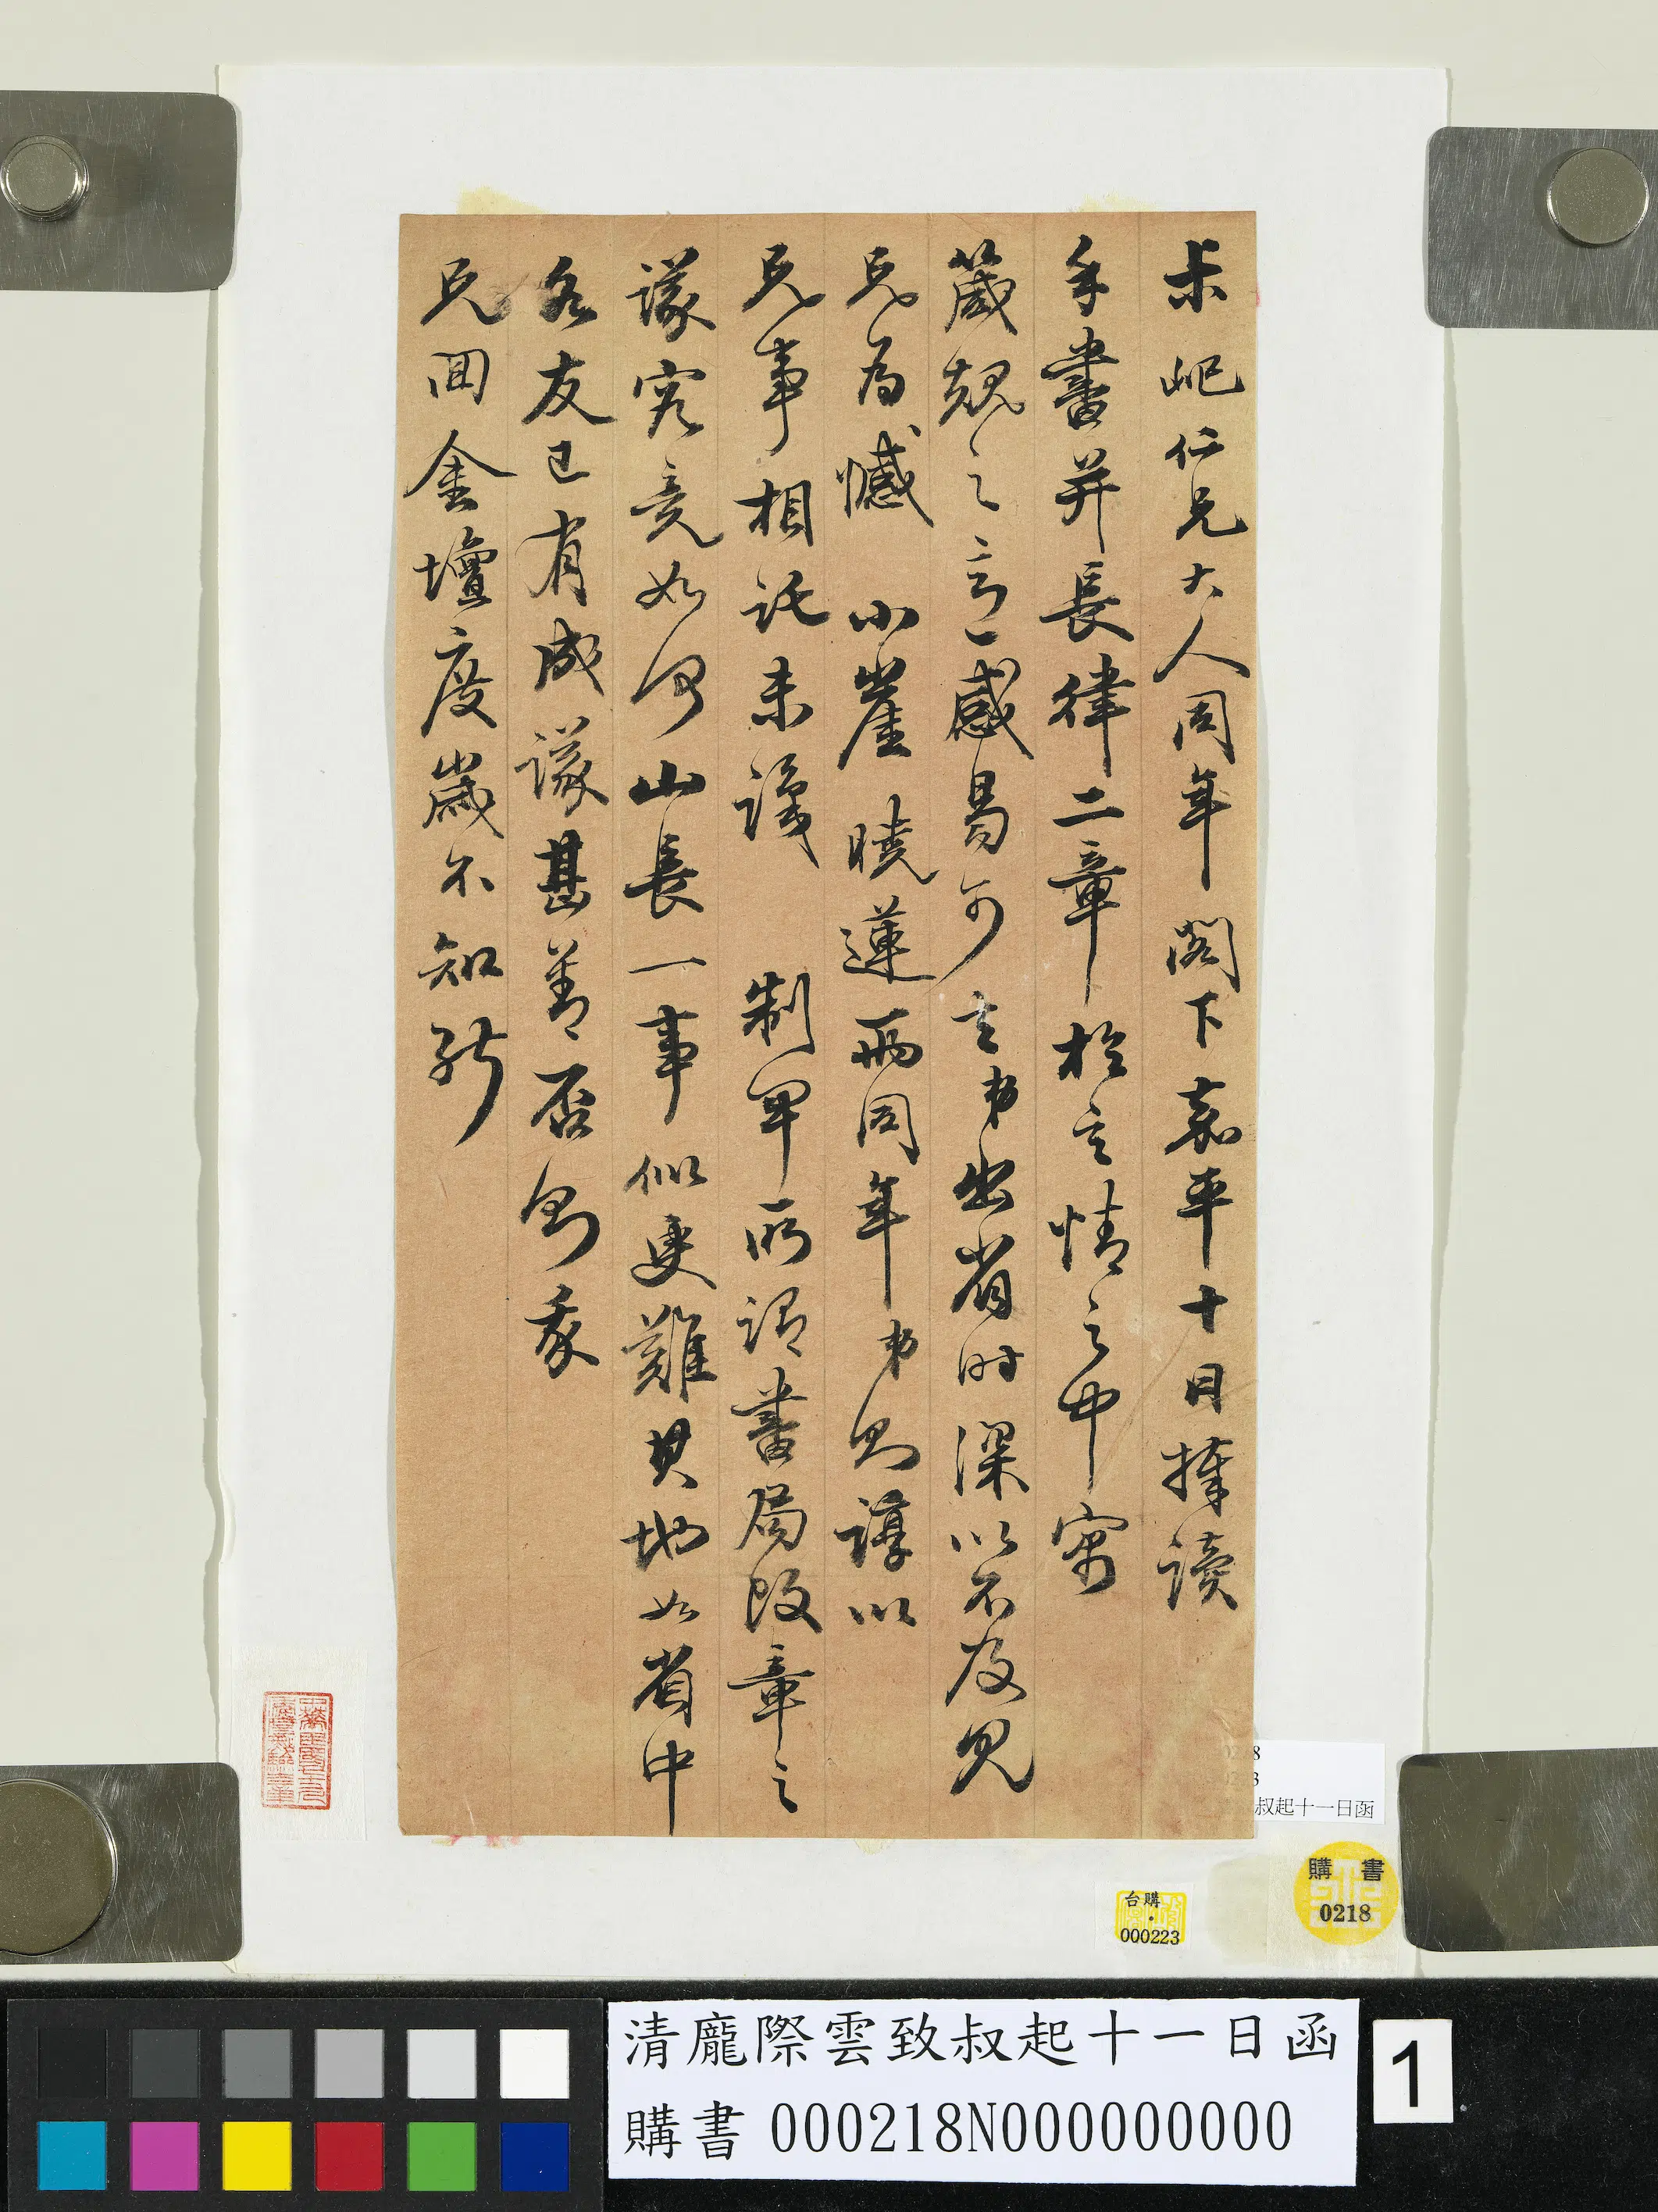 尗屺仁兄大人同年閣下嘉平十日捧讀
手書并長律二章於言情之中寓
箴規之言感易可言弟出省時深以不及見
兄為憾小崖曉蓮兩同年弟則諄以
兄事相託未識制軍所謂書局改章之
議究竟如何山長一事似更難其地如省中
各友已有成議甚善否則我
兄回金壇度歲不知能
叔起十一日函
購書
0218
台購
000223
清龐際雲致叔起十一日函
購書 000218N000000000
1